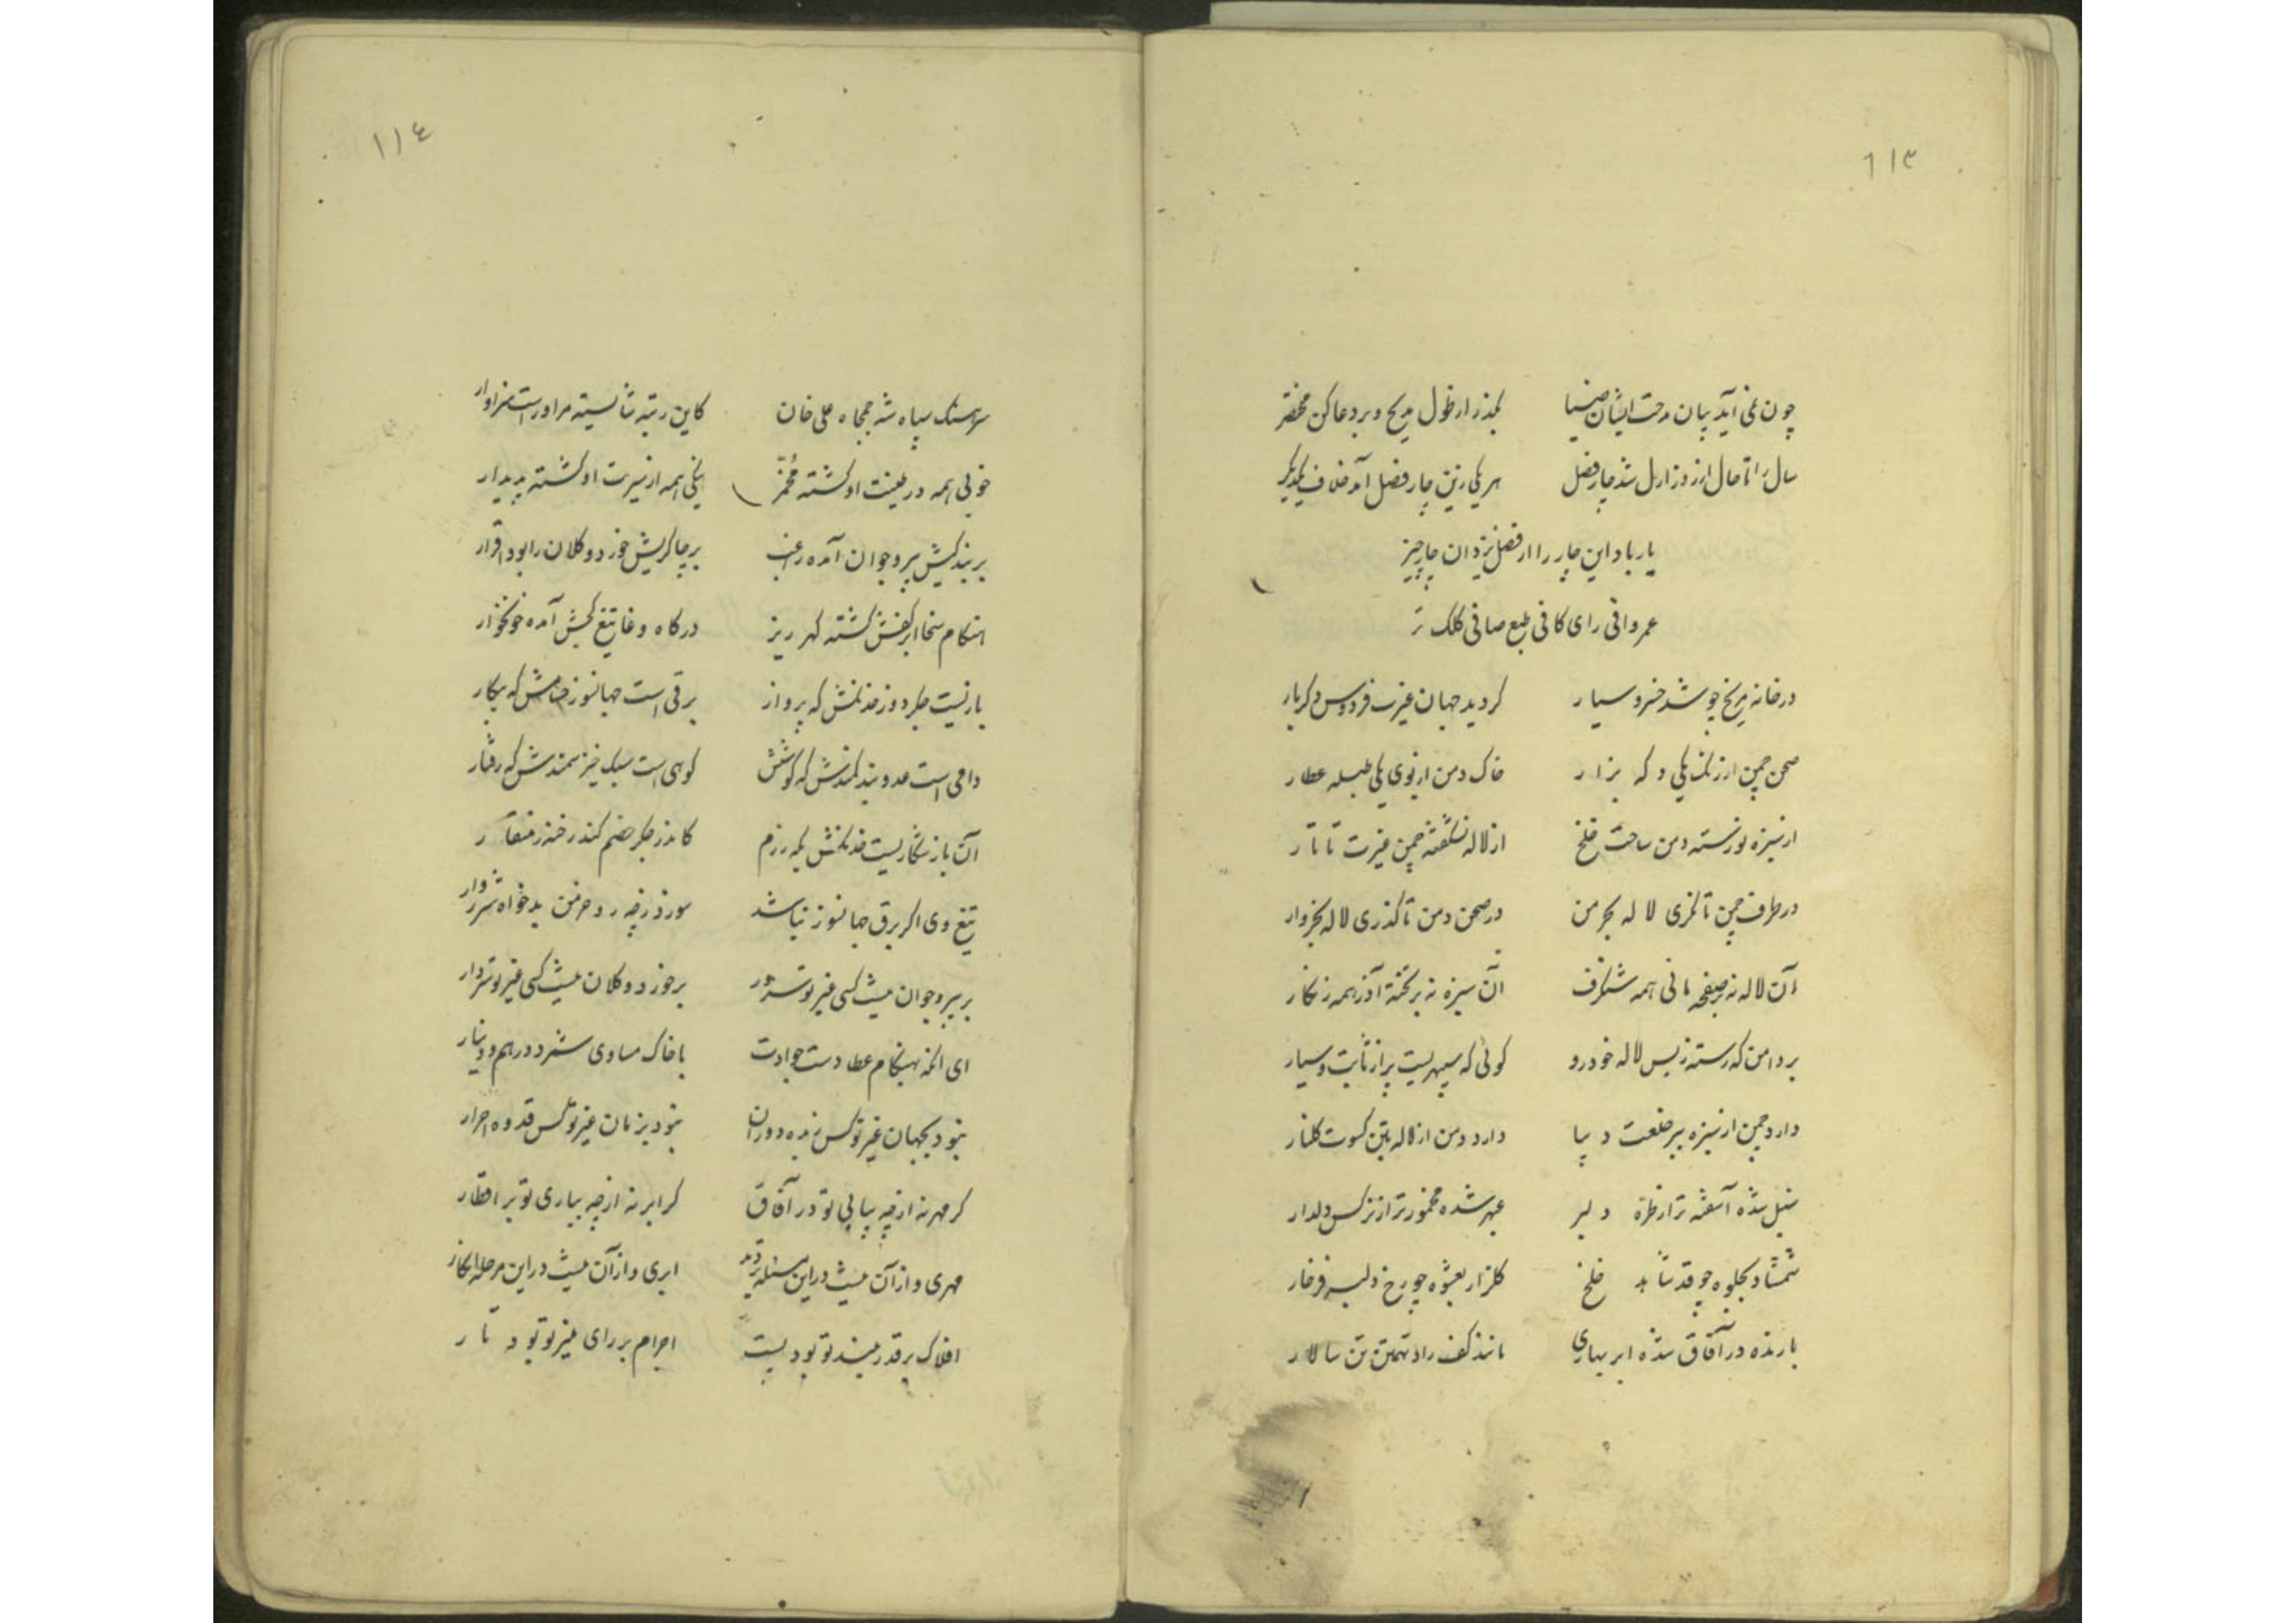 ۱۱۳
چون نمی آید بیان مدحت ایشان ضیا بگذر از طول مدیح و بر دعا کن مختصر
سال را تا حال از روز ازل شد چار فصل هر یکی زین چار فصل آمد خلاف یکدیگر
یار باد این چار را از فضل یزدان چار چیز
عمر وافی رای کافی طبع صافی کلک تر
در خانه مریخ چو شد خسرو سیار کردید جهان غیرت فردوس دکربار
صحن چمن از رنک یکی دکه بزار خاک دمن از بوی یکی طبله عطار
از سبزه نورسته دمن ساحت خلخ از لاله نشکفته چمن غیرت تاتار
در طرف چمن تا نکری لاله بخرمن در صحن دمن تا کذری لاله بخروار
آن لاله نه بر صفحه مانی همه شنکرف آن سبزه نه بر تخته آذر همه زنکار
بر دامن که رسته ز بس لاله خودرو کوئی که سپهریست پر از ثابت و سیار
دارد چمن از سبزه ببر خلعت دیبا دارد دمن از لاله بتن کسوت کلنار
سنبل شده آشفته تر از طره دلبر عبهر شده مخمورتر از نرکس دلدار
شمشاد بجلوه چو قد شاهد خلخ کلزار بعشوه چو رخ دلبر فرخار
بارنده در آفاق شده ابر بهاری مانند کف راد تهمتن تن سالار
۱۱٤
سرهنک سپاه شه جمجاه علی خان کاین رتبه شایسته مر او راست سزاوار
خوبی همه در طینت او کشته مُخمّر نیکی همه از سیرت او کشته پدیدار
بر بندکیش پیر و جوان آمده راغب بر چاکریش خورد و کلان را بود اقرار
هنکام سخا ابر کفش کشته کهر ریز در کاه وغا تیغ کجش آمده خونخوار
بازیست جکر دوز خدنکش که پرواز برقی است جهانسوز حسامش که پیکار
دامی است عدو بند کمندش که کوشش کوهی است سبک خیز سمندش که رفتار
آن باز شکاریست خدنکش بکه رزم کاندر جکر خصم کند رخنه ز منقار
تیغ وی اکر برق جهانسوز نباشد سوزد ز چه رو خرمن بدخواه شرروار
بر پیر و جوان نیست کسی غیر تو سرور بر خورد و کلان نیست کسی غیر تو سردار
ای آنکه بهنکام عطا دست جوادت با خاک مساوی شمرد درهم و دینار
نبود بجهان غیر تو کس زبده دوران نبود بزمان غیر تو کس قدوه احرار
کر مهر نه از چه بتابی تو در آفاق کر ابر نه از چه بباری تو بر اقطار
مهری و از آن نیست در این مسئله تردید ابری و از آن نیست در این مرحله انکار
افلاک بر قدر بلند تو بود پست اجرام بر رای منیر تو بود تار